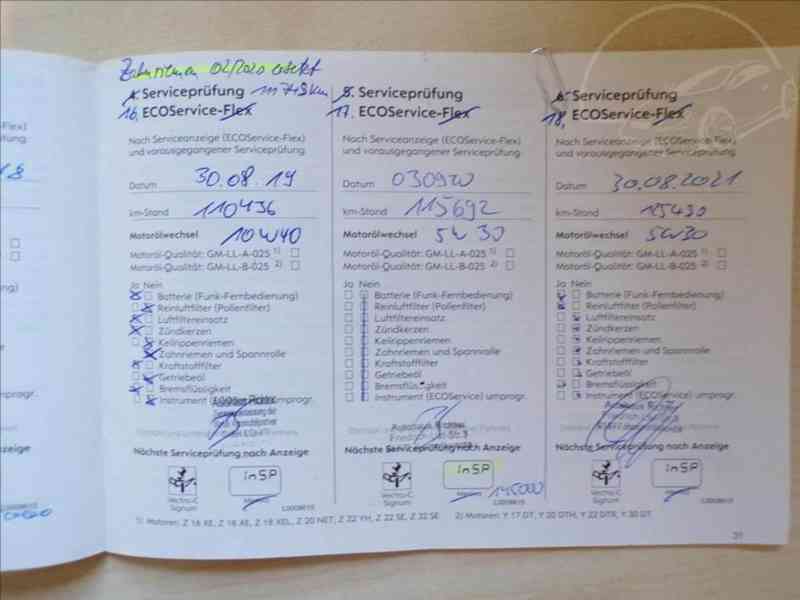 Zahnriemen 02/2020 ersetzt
4. Serviceprüfung 111749km
16, ECOService-Flex
Nach Serviceanzeige (ECOService-Flex)
und vorausgegangener Serviceprüfung
Datum 30.08.19
km-Stand 110436
Motorölwechsel 10W40
Motoröl-Qualität: GM-LL-A-025 1)
Motoröl-Qualität: GM-LL-B-025 2)
Ja Nein
Batterie (Funk-Fernbedienung)
Reinluftfilter (Pollenfilter)
Luftfiltereinsatz
Zündkerzen
Keilrippenriemen
Zahnriemen und Spannrolle
Kraftstofffilter
Getriebeöl
Bremsflüssigkeit
Instrument umprogr.
Nächste Serviceprüfung nach Anzeige
InSP
Vectra-C
Signum
5. Serviceprüfung
17. ECOService-Flex
Nach Serviceanzeige (ECOService-Flex)
und vorausgegangener Serviceprüfung
Datum 030920
km-Stand 115692
Motorölwechsel 5W30
Motoröl-Qualität: GM-LL-A-025 1)
Motoröl-Qualität: GM-LL-B-025 2)
Ja Nein
Batterie (Funk-Fernbedienung)
Reinluftfilter (Pollenfilter)
Luftfiltereinsatz
Zündkerzen
Keilrippenriemen
Zahnriemen und Spannrolle
Kraftstofffilter
Getriebeöl
Bremsflüssigkeit
Instrument (ECOService) umprogr.
Autohaus
Nächste Serviceprüfung nach Anzeige
InSP
145000
Vectra-C
Signum
6. Serviceprüfung
18, ECOService-Flex
Nach Serviceanzeige (ECOService-Flex)
und vorausgegangener Serviceprüfung
Datum 30.08.2021
km-Stand 125430
Motorölwechsel 5W30
Motoröl-Qualität: GM-LL-A-025 1)
Motoröl-Qualität: GM-LL-B-025 2)
Ja Nein
Batterie (Funk-Fernbedienung)
Reinluftfilter (Pollenfilter)
Luftfiltereinsatz
Zündkerzen
Keilrippenriemen
Zahnriemen und Spannrolle
Kraftstofffilter
Getriebeöl
Bremsflüssigkeit
Instrument (ECOService) umprogr.
Autohaus
Nächste Serviceprüfung nach Anzeige
InSP
Vectra-C
Signum
1) Motoren: Z 16 XE, Z 18 XE, Z 18 XEL, Z 20 NET, Z 22 YH, Z 22 SE, Z 32 SE 2) Motoren: Y 17 DT, Y 20 DTH, Y 22 DTR, Y 30 DT